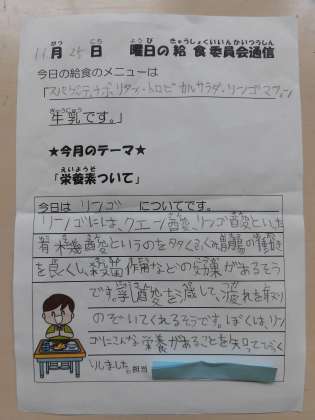 11月25日 曜日の給食委員会通信
今日の給食のメニューは
「スパゲッティナポリタン・トロピカルサラダ・リンゴマフィン
牛乳です。」
★今月のテーマ★
「栄養素ついて」
今日は リンゴ についてです。
リンゴには、クエン酸、リンゴ酸といった
有機酸というのを多くふくみ胃腸の働き
を良くし、殺菌作用などの効果があるそう
です。乳酸を減して、疲れを取り
のぞいてくれるそうです。ぼくは、リン
ゴにこんな栄養があることを知ってびっく
りしました。担当